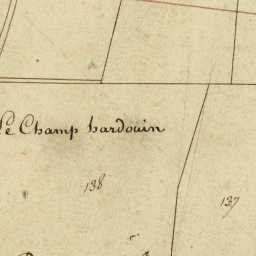 Le Champ hardouin
138
137